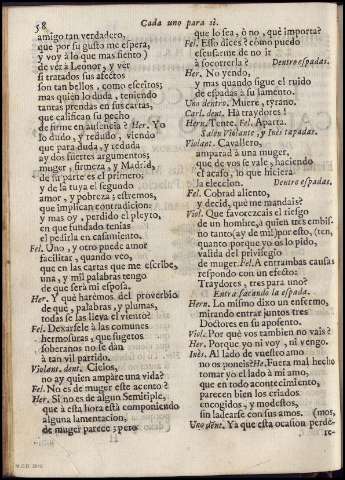 58
Cada uno para sì.
amigo tan verdadero,
que por su gusto me espera,
y voy à lo que mas siento)
de vèr à Leonor, y ver
si tratados sus afectos
son tan bellos, como escritos;
mas quien lo duda, teniendo
tantas prendas en sus cartas,
que califican su pecho
de firme en ausencia? Her. Yo
lo dudo, y redudo, viendo
que para duda, y reduda
ay dos fuertes argumentos;
muger, firmeza, y Madrid,
de su parte es el primero;
y de la tuya el segundo
amor, y pobreza; estremos,
que implican contradicion:
y mas oy, perdido el pleyto,
en que fundado tenias
el pedirla en casamiento.
Fel. Uno, y otro puede amor
facilitar, quando veo,
que en las cartas que me escribe,
una, y mil palabras tengo
de que serà mi esposa.
Her. Y què harèmos del proverbio
de que, palabras, y plumas,
todas se las lleva el viento?
Fel. Dexarsele à las comunes
hermosuras, que sugetos
soberanos no se dàn
à tan vil partido.
Violant. dent. Cielos,
no ay quien ampàre una vida?
Fel. No es de muger este acento?
Her. Si no es de algun Semitiple,
que à esta hora està componiendo
alguna lamentacion,
de muger parece; pero
que lo sea, ò no, què importa?
Fel. Esso dices? còmo puedo
escusarme de no ir
à socorrerla? Dentro espadas.
Her. No yendo,
y mas quando sigue el ruido
de espadas à su lamento.
Uno dentro. Muere, tyrano.
Carl. dent. Ha traydores!
Hern. Tente. Fel. Aparta.
Salen Violante, y Inès tapadas.
Violant. Cavallero,
amparad à una muger,
que de vos se vale, haciendo
el acaso, lo que hiciera
la eleccion. Dentro espadas.
Fel. Cobrad aliento,
y decid, què me mandais?
Viol. Que favorezcais el riesgo
de un hombre, à quien tres embisten,
no tanto (ay de mi!) por esto,
quanto porque yo os lo pido,
valida del privilegio
de muger. Fel. A entrambas causas
respondo con un efecto:
Traydores, tres para uno?
Entra sacando la espada.
Hern. Lo mismo dixo un enfermo,
mirando entrar juntos tres
Doctores en su aposento.
Viol. Por què vos tambien no vais?
Her. Porque yo ni voy, ni vengo.
Inès. Al lado de vuestro amo
no os poneis? He. Fuera mal hecho
tomar yo el lado à mi amo,
que en todo acontecimiento,
parecen bien los criados
encogidos, y modestos,
sin ladearse con sus amos. (mos,
Uno dent. Ya que esta ocasion perde-
re-